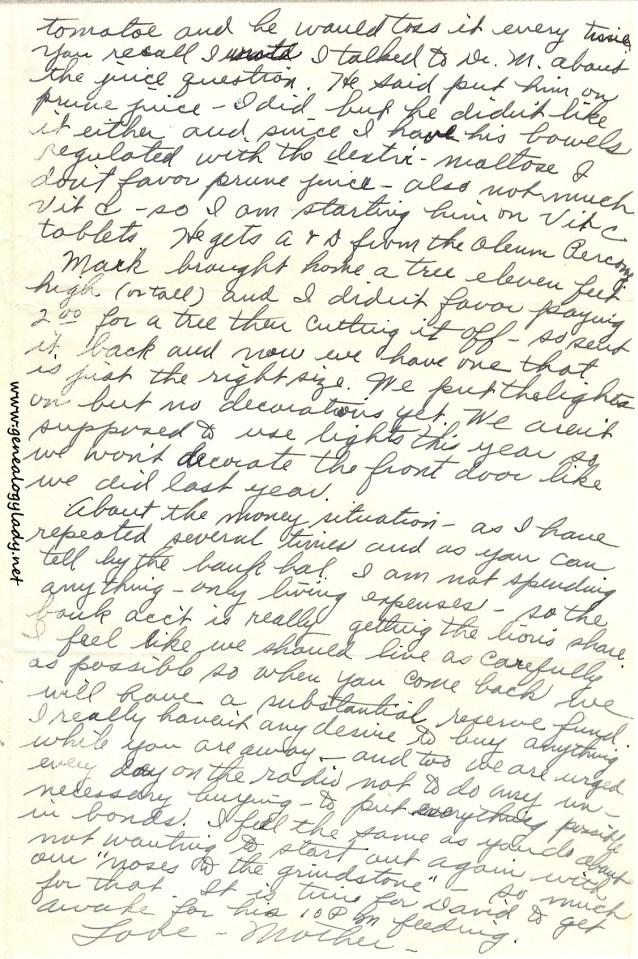 tomatoe and he would toss it every time.
You recall I I talked to Dr. M. about
the juice question. He said put him on
prune juice - I did but he didn't like
it either and since I have his bowels
regulated with the dextri-maltose I
don't favor prune juice - also not much
Vit C - so I am starting him on Vit C
tablets He gets A & D from the Oleum Percomorph
Mark brought home a tree eleven feet
high (or tall) and I didn't favor paying
2.00 for a tree then cutting it off - so sent
it back and now we have one that
is just the right size. We put the lights
on but no decorations yet. We aren't
supposed to use lights this year so
we won't decorate the front door like
we did last year.
About the money situation - as I have
repeated several times and as you can
tell by the bank bal. I am not spending
anything - only living expenses - so the
bank acct is really getting the lions share.
I feel like we should live as carefully
as possible so when you come back we
will have a substantial reserve fund.
I really haven't any desire to buy anything
while you are away - and too we are urged
every day on the radio not to do any un-
necessary buying - to put everything possible
in bonds. I feel the same as you do about
not wanting to start out again with
our "noses to the grindstone" - so much
for that. It is time for David to get
awake for his 10 P M feeding.
Love - Mother -
www.genealogylady.net